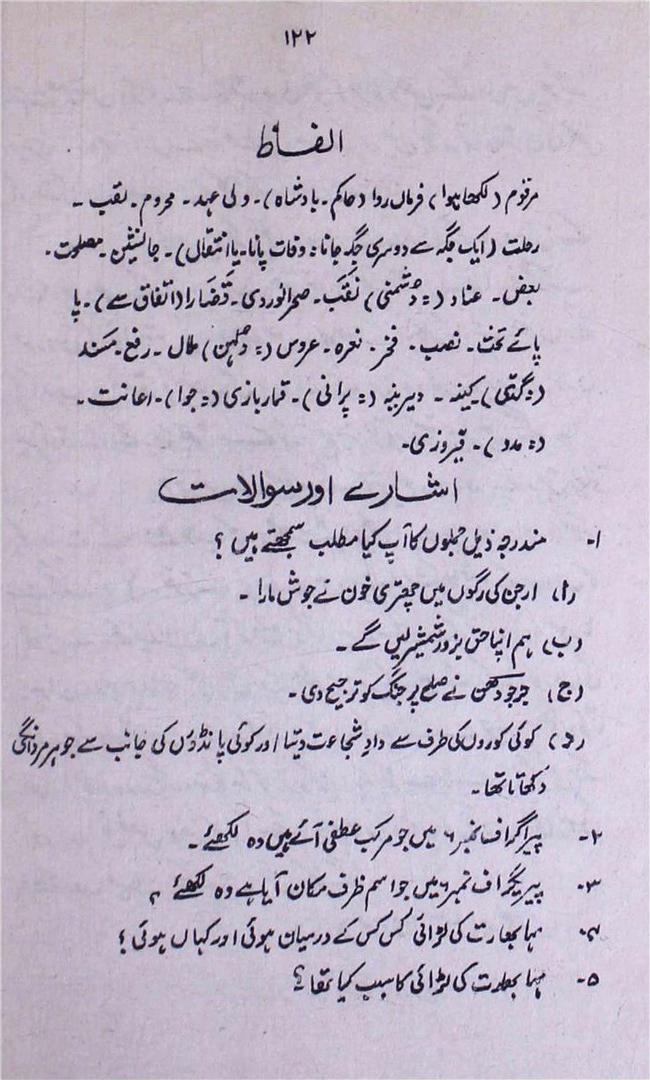 ۱۲۲
الفاظ
مرقوم (لکھا ہوا) فرماں روا (حاکم۔ بادشاہ)۔ ولی عہد۔ محروم۔ لقب۔
رحلت (ایک جگہ سے دوسری جگہ جانا: وفات پانا۔ یا انتقال)۔ جانشین۔ مصلحت۔
بعض۔ عناد (= دشمنی) نقب۔ صحرا نوردی۔ قضارا (اتفاق سے)۔ پا
پائے تخت۔ نصب۔ فخر۔ نعرہ۔ عروس (= دلہن) ملال۔ رفع۔ مسند
(= گدّی) کینہ۔ دیرینہ (= پرانی)۔ قمار بازی (= جوا)۔ اعانت۔
(= مدد)۔ فیروزی۔
اشارے اور سوالات
۱۔ مندرجہ ذیل جملوں کا آپ کیا مطلب سمجھتے ہیں؟
(ا) ارجن کی رگوں میں چھتری خون نے جوش مارا۔
(ب) ہم اپنا حق بزورِ شمشیر لیں گے۔
(ج) جرجودھن نے صلح پر جنگ کو ترجیح دی۔
(د) کوئی کوروں کی طرف سے دادِ شجاعت دیتا اور کوئی پانڈوں کی جانب سے جوہر مردانگی
دکھاتا تھا۔
۲۔ پیراگراف نمبر ۶ میں جو مرکب عطفی آئے ہیں وہ لکھئے۔
۳۔ پیرگراف نمبر ۶ میں جو اسم ظرف مکان آیا ہے وہ لکھئے ؟
۴۔ مہا بھارت کی لڑائی کس کس کے درمیان ہوئی اور کہاں ہوئی؟
۵۔ مہا بھارت کی لڑائی کا سبب کیا تھا؟